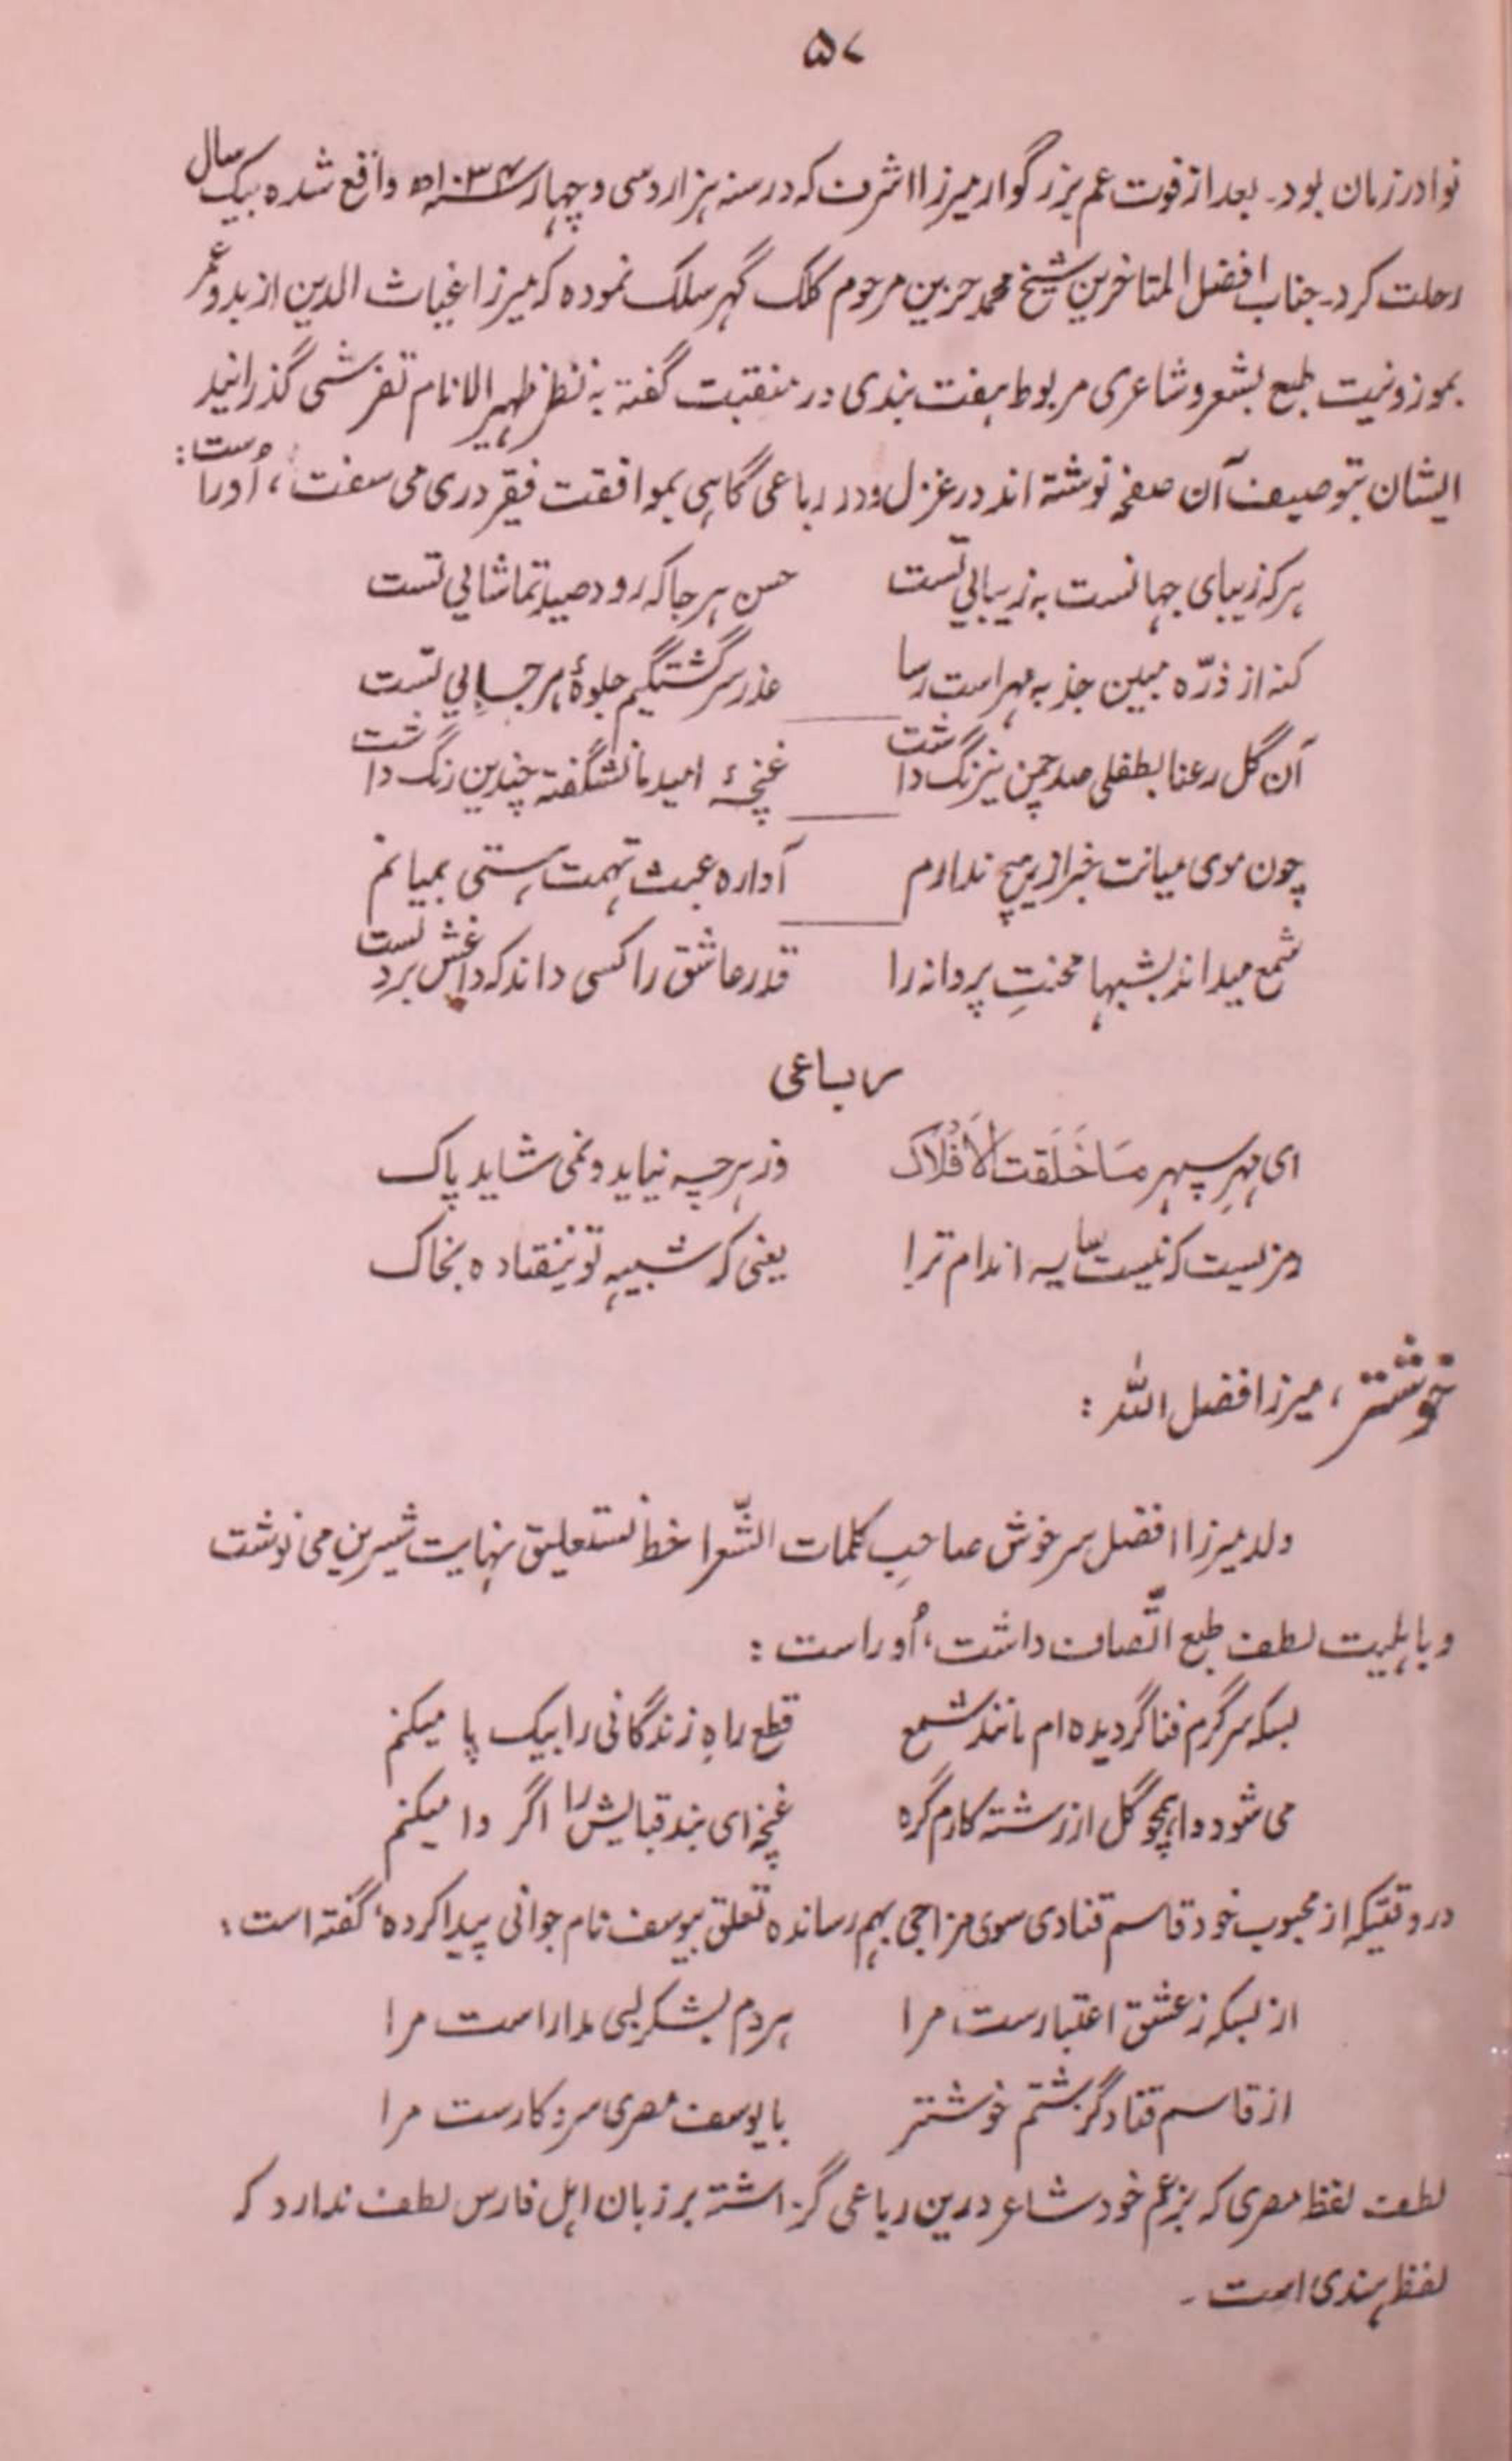 ۵۷
نوادر زمان بود۔ بعد از فوت عم بزرگوار میرزا اشرف که در سنه هزار و سی و چهار ۱۰۳۴ھ واقع شده بیک سال
رحلت کرد۔ جناب افضل المتاخرین شیخ محمد حزین مرحوم کلک گهر سلک نموده که میرزا غیاث الدین از بدو عمر
بموزونیت طبع بشعر و شاعری مربوط هفت بندی در منقبت گفته به نظر ظهیر الانام تفرشی گذرانید
ایشان بتوصیف آن صفحه نوشته اند در غزل و در رباعی گاهی بموافقت فقیر دری می سفت، اُوراست:
هر که زیبای جهانست به زیبایی تست    حسن هر جا که رود صید تماشایی تست
کنه از ذرّه مبین جذبه مهر است رسا    عذر سرگشتگیم جلوهٔ هر جایی تست
آن گل رعنا بطفلی صد چمن نیرنگ داشت    غنچهٔ امید ما نشگفته چندین رنگ داشت
چون موی میانت خبر از هیچ ندارم    آواره عبث تهمت هستی بمیانم
شمع میداند بشبها محنتِ پروانه را    قدر عاشق را کسی داند که داغش بر دلست
رباعی
ای مهرِ سپهر مَا خَلَقت الاَفْلاَک    وز هرچه نیاید و نمی شاید پاک
رمزیست که نیست سایه اندام ترا    یعنی که شبیهِ تو نیفتاده بخاک
خوشتر، میرزا فضل اللہ:
ولد میرزا افضل سرخوش صاحبِ کلمات الشّعرا خط نستعلیق نهایت شیرین می نوشت
و باهلیت لطف طبع اتّصاف داشت، اُوراست:
بسکه سرگرم فنا گردیده ام مانند شمع    قطع راهِ زندگانی را بیک پا میکنم
می شود وا همچو گل از رشته کارم گره    غنچه ای بند قبایش را اگر وا میکنم
در وقتیکه از محبوب خود قاسم قنادی سوی مزاجی بهم رسانده تعلق بیوسف نام جوانی پیدا کرده گفته است:
از بسکه ز عشق اعتبارست مرا    هردم بشکر لبی مدار است مرا
از قاسم قناد گزشتم خوشتر    با یوسف مصری سروکارست مرا
لطف لفظ مصری که بزعم خود شاعر درین رباعی گزاشته بر زبان اهل فارس لطف ندارد که
لفظ هندی است۔